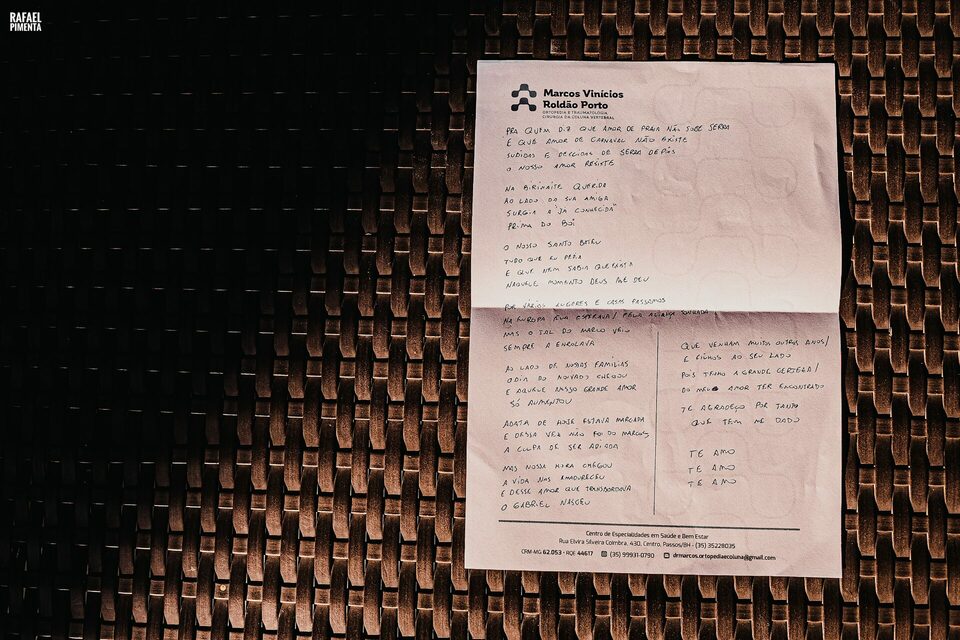 RAFAEL
PIMENTA
Marcos Vinícios
Roldão Porto
ORTOPEDIA E TRAUMATOLOGIA
CIRURGIA DA COLUNA VERTEBRAL
PRA QUEM DIZ QUE AMOR DE PRAIA NÃO SOBE SERRA
E QUE AMOR DE CARNAVAL NÃO EXISTE
SUBIDAS E DESCIDAS DE SERRA DEPOIS
O NOSSO AMOR RESISTE
NA BIRINAITE QUERIDA
AO LADO DA SUA AMIGA
SURGIA A "JA CONHECIDA"
PRIMA DO BOI
O NOSSO SANTO BATEU
TUDO QUE EU PEDIA
E QUE NEM SABIA QUE EXISTIA
NAQUELE MOMENTO DEUS ME DEU
POR VÁRIOS LUGARES E CASAS PASSAMOS
NA EUROPA ELA ESPERAVA / PELA ALIANÇA SONHADA
MAS O TAL DO MARCO VEIO
SEMPRE A ENROLAVA
AO LADO DE NOSSAS FAMÍLIAS
O DIA DO NOIVADO CHEGOU
E AQUELE NOSSO GRANDE AMOR
SÓ AUMENTOU
A DATA DE HOJE ESTAVA MARCADA
E DESSA VEZ NÃO FOI DO MARCOS
A CULPA DE SER ADIADA
MAS NOSSA HORA CHEGOU
A VIDA NOS AMADURECEU
E DESSE AMOR QUE TRANSBORDAVA
O GABRIEL NASCEU
QUE VENHAM MUITOS OUTROS ANOS /
E FILHOS AO SEU LADO
POIS TENHO A GRANDE CERTEZA /
DO MEU AMOR TER ENCONTRADO
TE AGRADEÇO POR TANTO
QUE TEM ME DADO
TE AMO
TE AMO
TE AMO
Centro de Especialidades em Saúde e Bem Estar
Rua Elvira Silveira Coimbra, 430, Centro, Passos/BH - (35) 35228035
CRM-MG 62.053 - RQE 44617 (35) 99931-0790 drmarcos.ortopediaecoluna@gmail.com